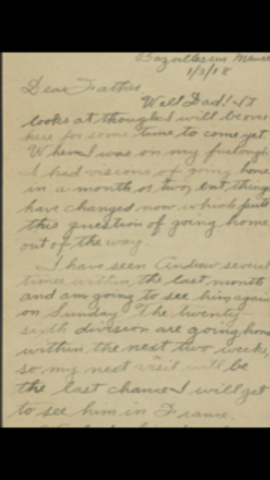 Bazoilles sur Meuse
1/3/18
Dear Father,
Well Dad! It
looks as though I will be over
here for some time to come yet
When I was on my furlough
I had visions of going home
in a month or two, but things
have changed now which puts
this question of going home
out of the way
I have seen Andrew several
times within the last month
and am going to see him again
on Sunday. The twenty-
sixth division are going home
within the next two weeks,
so my next visit will be
the last chance I will get
to see him in France.